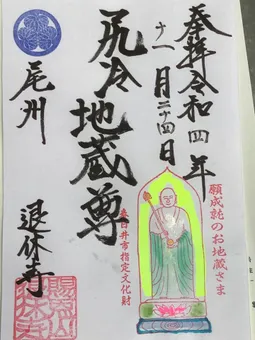 奉拝令和四年
十一月二十四日
尻冷地蔵尊
尾州
退休寺
願成就のお地蔵さま
春日井市指定文化財